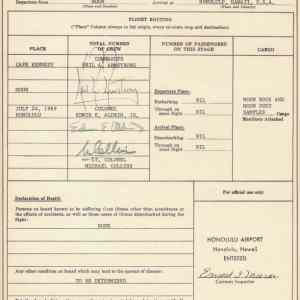 MOON
HONOLULU, HAWAII, U.S.A.
(Place and Country)
(Place and Country)
FLIGHT ROUTING
("Place" Column always to list origin, every en-route stop and destination)
PLACE
TOTAL NUMBER OF CREW
NUMBER OF PASSENGERS ON THIS STAGE
CARGO
CAPE KENNEDY
COMMANDER
NEIL A. ARMSTRONG
MOON
Departure Place:
Embarking NIL
Through on same flight NIL
MOON ROCK AND
MOON DUST
SAMPLES
Manifests Attached
JULY 24, 1969
HONOLULU
COLONEL
EDWIN E. ALDRIN, JR.
Arrival Place:
Disembarking NIL
Through on same flight NIL
LT. COLONEL
MICHAEL COLLINS
Declaration of Health
Persons on board known to be suffering from illness other than airsickness or
the effects of accidents, as well as those cases of illness disembarked during the
flight:
NONE
For official use only
HONOLULU AIRPORT
Honolulu, Hawaii
ENTERED
Customs Inspector
Any other condition on board which may lead to the spread of disease:
TO BE DETERMINED